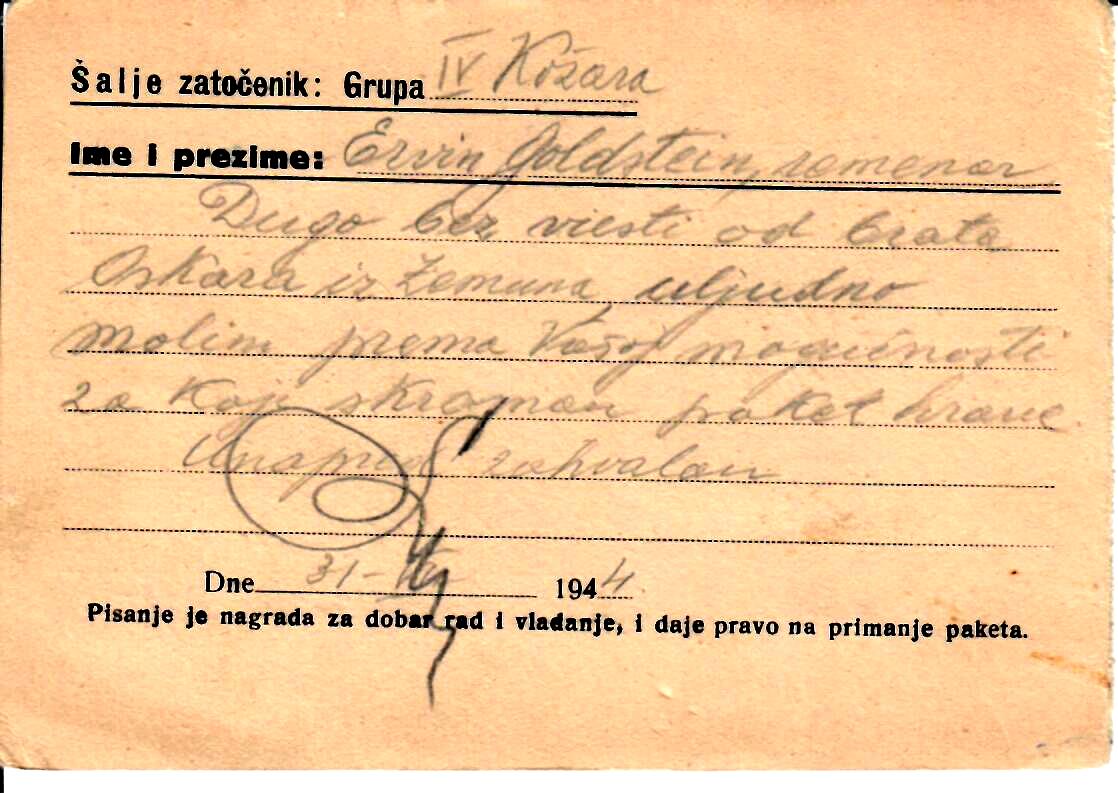 Šalje zatočenik: Grupa IV Kožara
Ime i prezime: Ervin Goldstein, remenar
Dugo bez viesti od brata
Oskara iz Zemuna, uljudno
molim prema Vašoj mogućnosti
za koji skroman paket hrane
Unapred zahvalan
Dne 31- 1944
Pisanje je nagrada za dobar rad i vladanje, i daje pravo na primanje paketa.